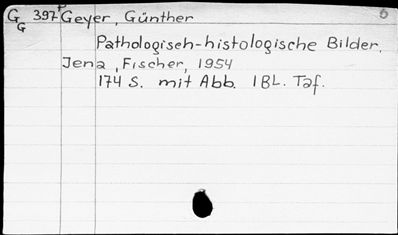 G G 397 P Geyer, Günther 6
Pathologisch-histologische Bilder.
Jena, Fischer, 1954
174 S. mit Abb. 1 BL. Taf.